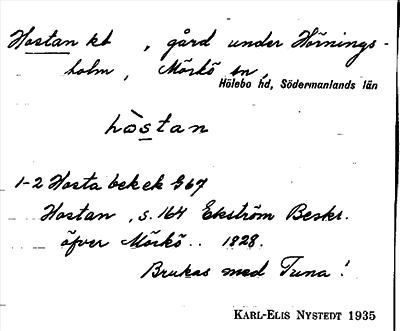 Hostan kb , gård under Hörnings-
holm , Mörkö sn,
Hölebo hd, Södermanlands län
hòstan
1-2 Hosta bek ek 567
Hostan , s. 164 Ekström Beskr.
öfver Mörkö .. 1828.
Brukas med Tuna!
KARL-ELIS NYSTEDT 1935